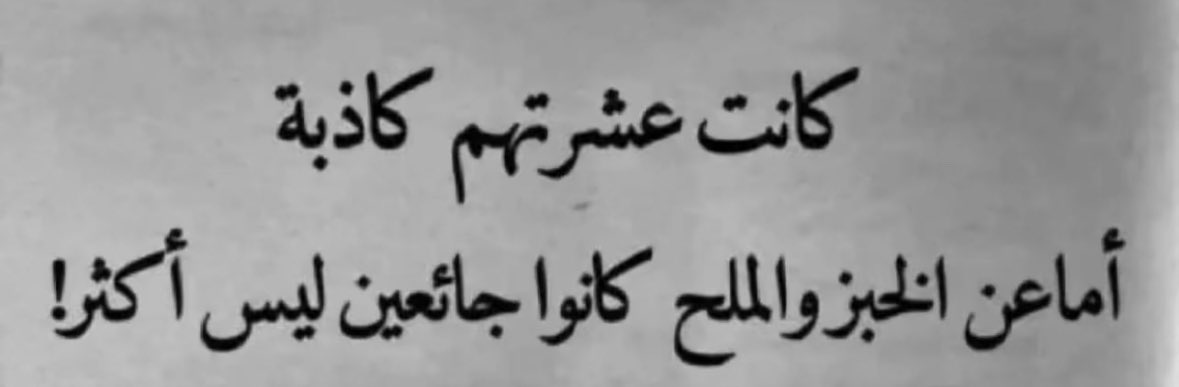 كانت عشرتهم كاذبة
أما عن الخبز والملح كانوا جائعين ليس أكثر!